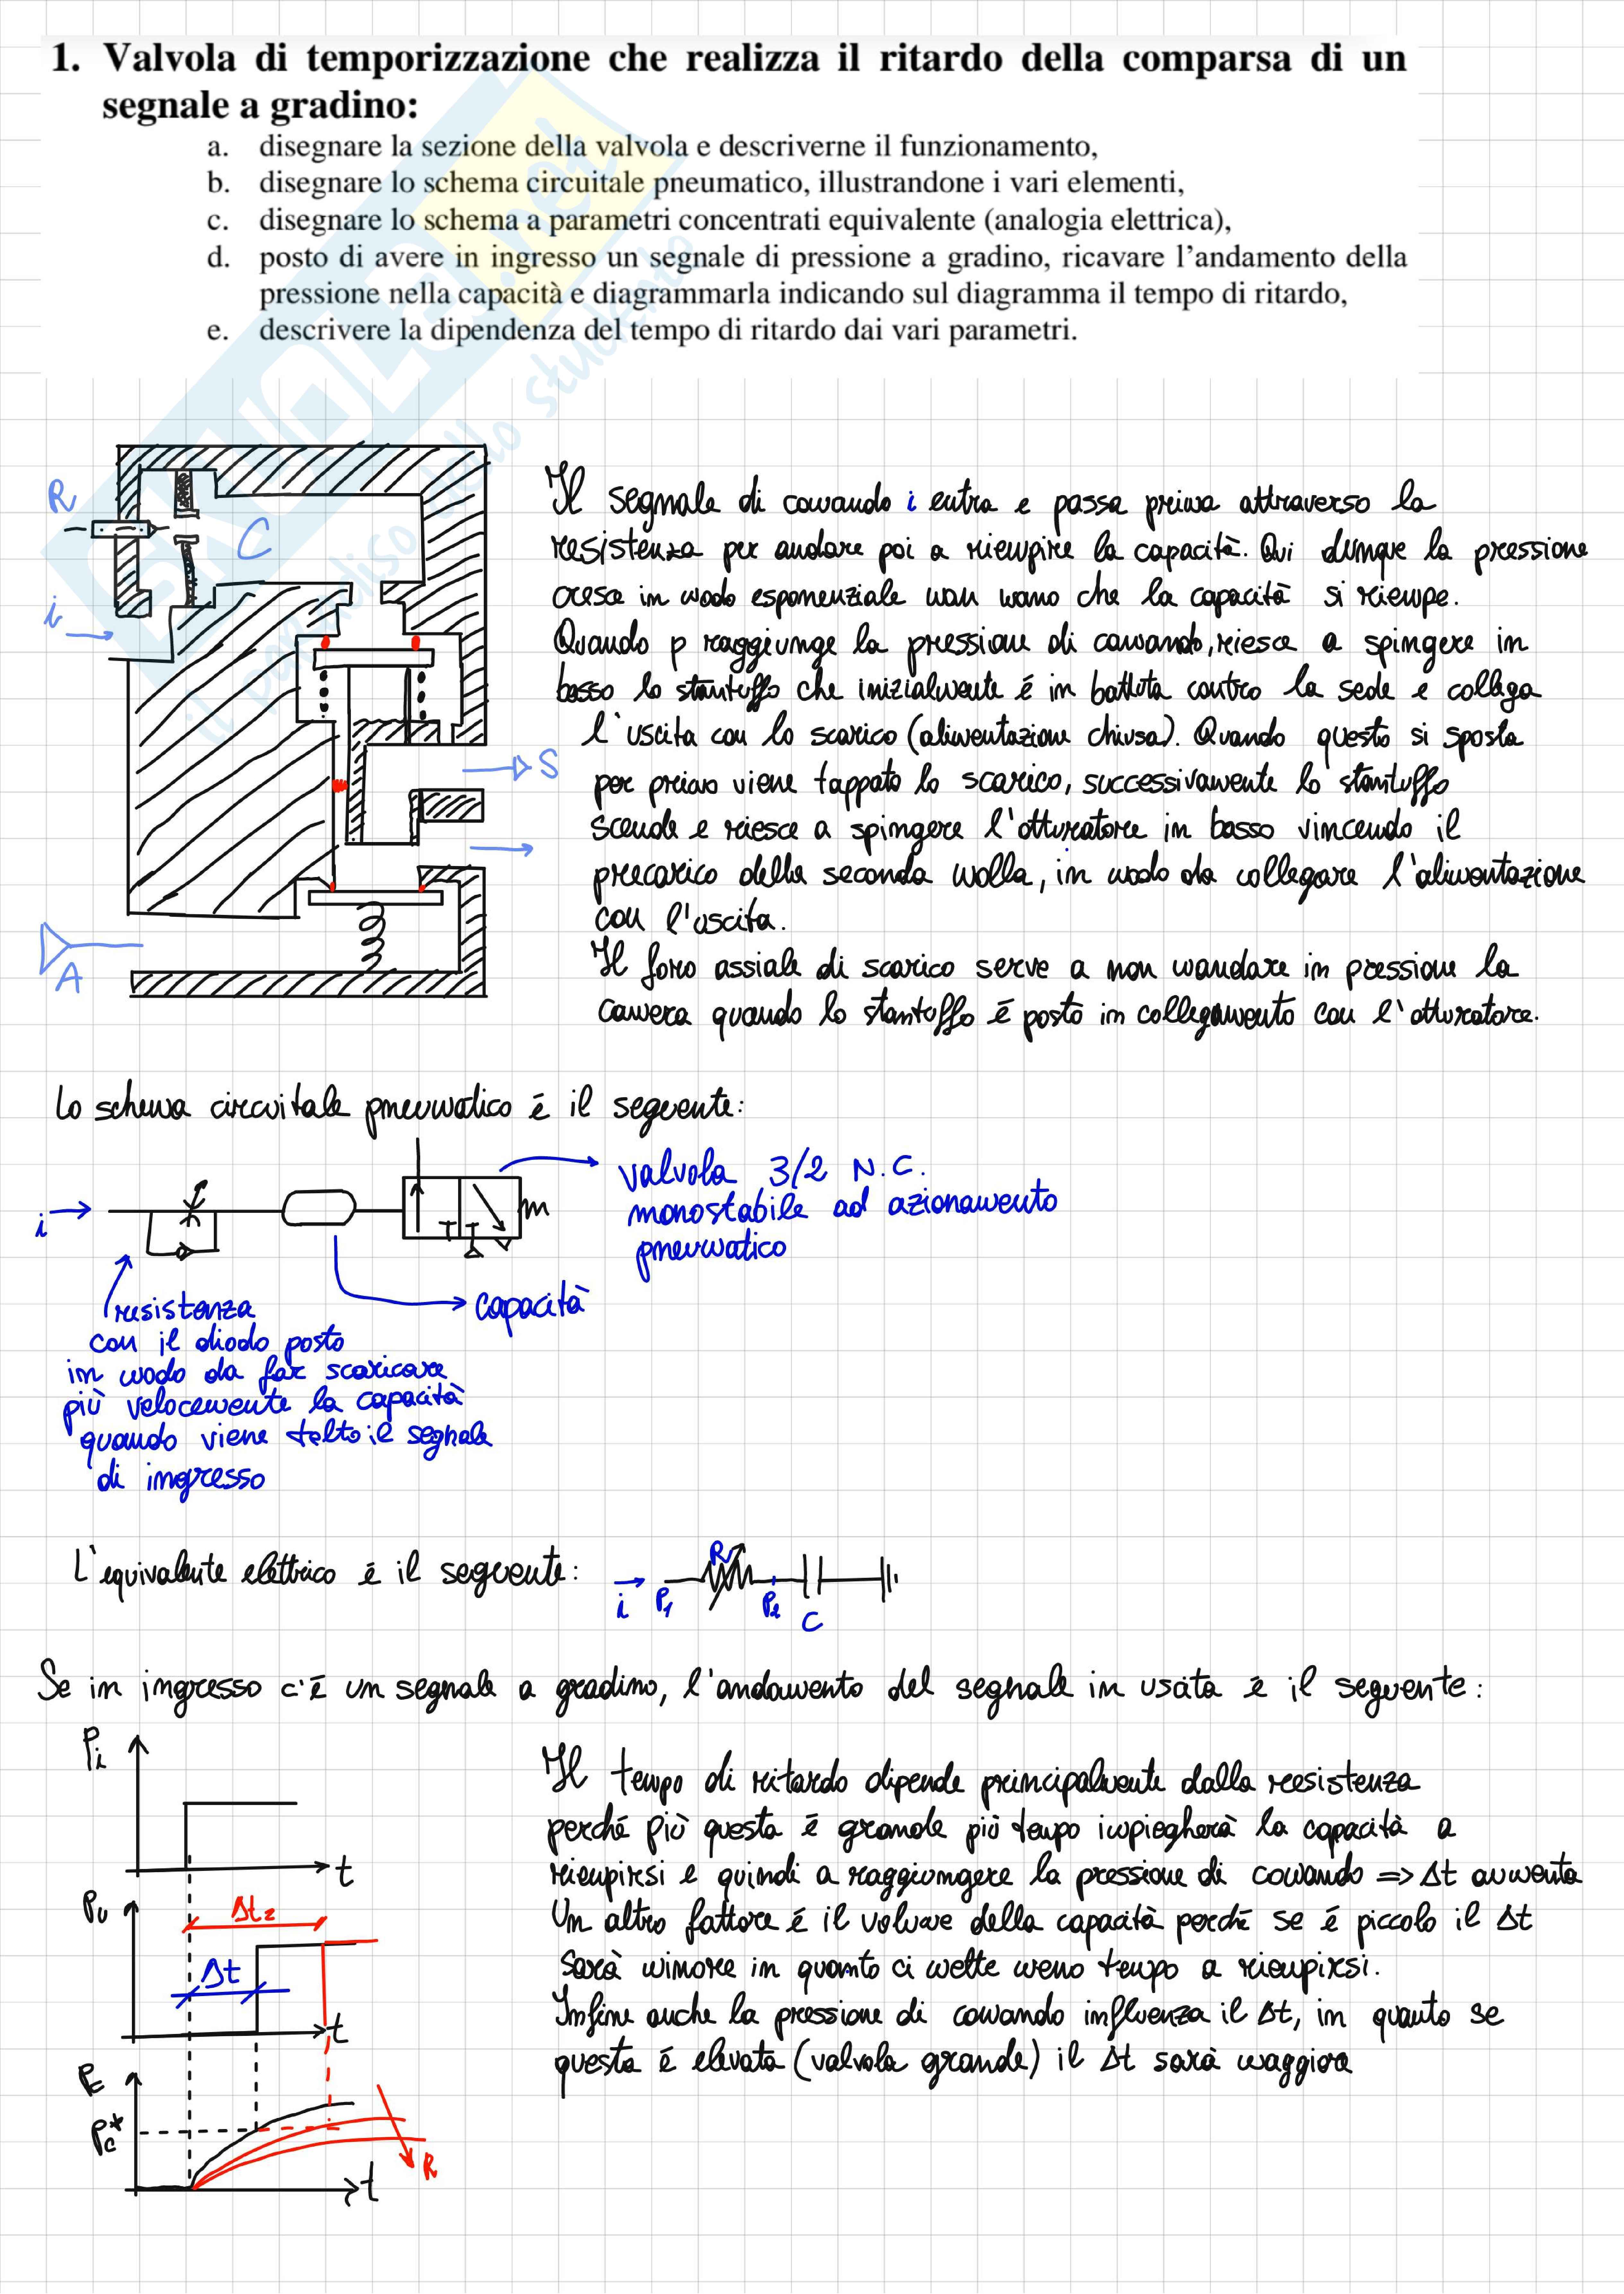 1. Valvola di temporizzazione che realizza il ritardo della comparsa di un
segnale a gradino:
a. disegnare la sezione della valvola e descriverne il funzionamento,
b. disegnare lo schema circuitale pneumatico, illustrandone i vari elementi,
c. disegnare lo schema a parametri concentrati equivalente (analogia elettrica),
d. posto di avere in ingresso un segnale di pressione a gradino, ricavare l'andamento della
pressione nella capacità e diagrammarla indicando sul diagramma il tempo di ritardo,
e. descrivere la dipendenza del tempo di ritardo dai vari parametri.
SKUOLA.net
il paradiso dello studente
R
C
i
S
A
Il segnale di comando i entra e passa prima attraverso la
resistenza per andare poi a riempire la capacità. Qui dunque la pressione
cresce in modo esponenziale man mano che la capacità si riempe.
Quando p raggiunge la pressione di comando, riesce a spingere in
basso lo stantuffo che inizialmente é in battuta contro la sede e collega
l'uscita con lo scarico (alimentazione chiusa). Quando questo si sposta
per primo viene tappato lo scarico, successivamente lo stantuffo
scende e riesce a spingere l'otturatore in basso vincendo il
precarico della seconda molla, in modo da collegare l'alimentazione
con l'uscita.
Il foro assiale di scarico serve a non mandare in pressione la
camera quando lo stantuffo é posto in collegamento con l'otturatore.
Lo schema circuitale pneumatico é il seguente:
i
valvola 3/2 N.C.
monostabile ad azionamento
pneumatico
capacità
resistenza
con il diodo posto
in modo da far scaricare
più velocemente la capacità
quando viene tolto il segnale
di ingresso
L'equivalente elettrico é il seguente:
i P1 R P2 C
Se in ingresso c'é un segnale a gradino, l'andamento del segnale in uscita é il seguente:
Pi
t
Pu
Δt2
Δt
t
Pc
Pc*
R
t
Il tempo di ritardo dipende principalmente dalla resistenza
perché più questa é grande più tempo impiegherà la capacità a
riempirsi e quindi a raggiungere la pressione di comando => Δt aumenta
Un altro fattore é il volume della capacità perché se é piccolo il Δt
sarà minore in quanto ci mette meno tempo a riempirsi.
Infine anche la pressione di comando influenza il Δt, in quanto se
questa é elevata (valvola grande) il Δt sarà maggiore